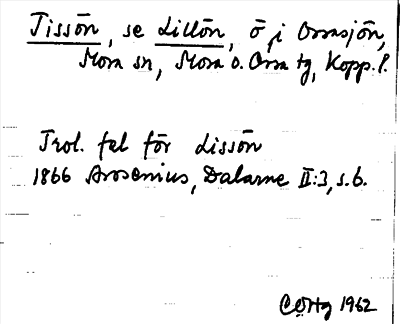 Tissön, se Lillön, ö i Orsasjön,
Mora sn, Mora o. Orsa tg, Kopp. l.
Trol. fel för Lissön
1866 Arosenius, Dalarne II:3, s. 6.
1962